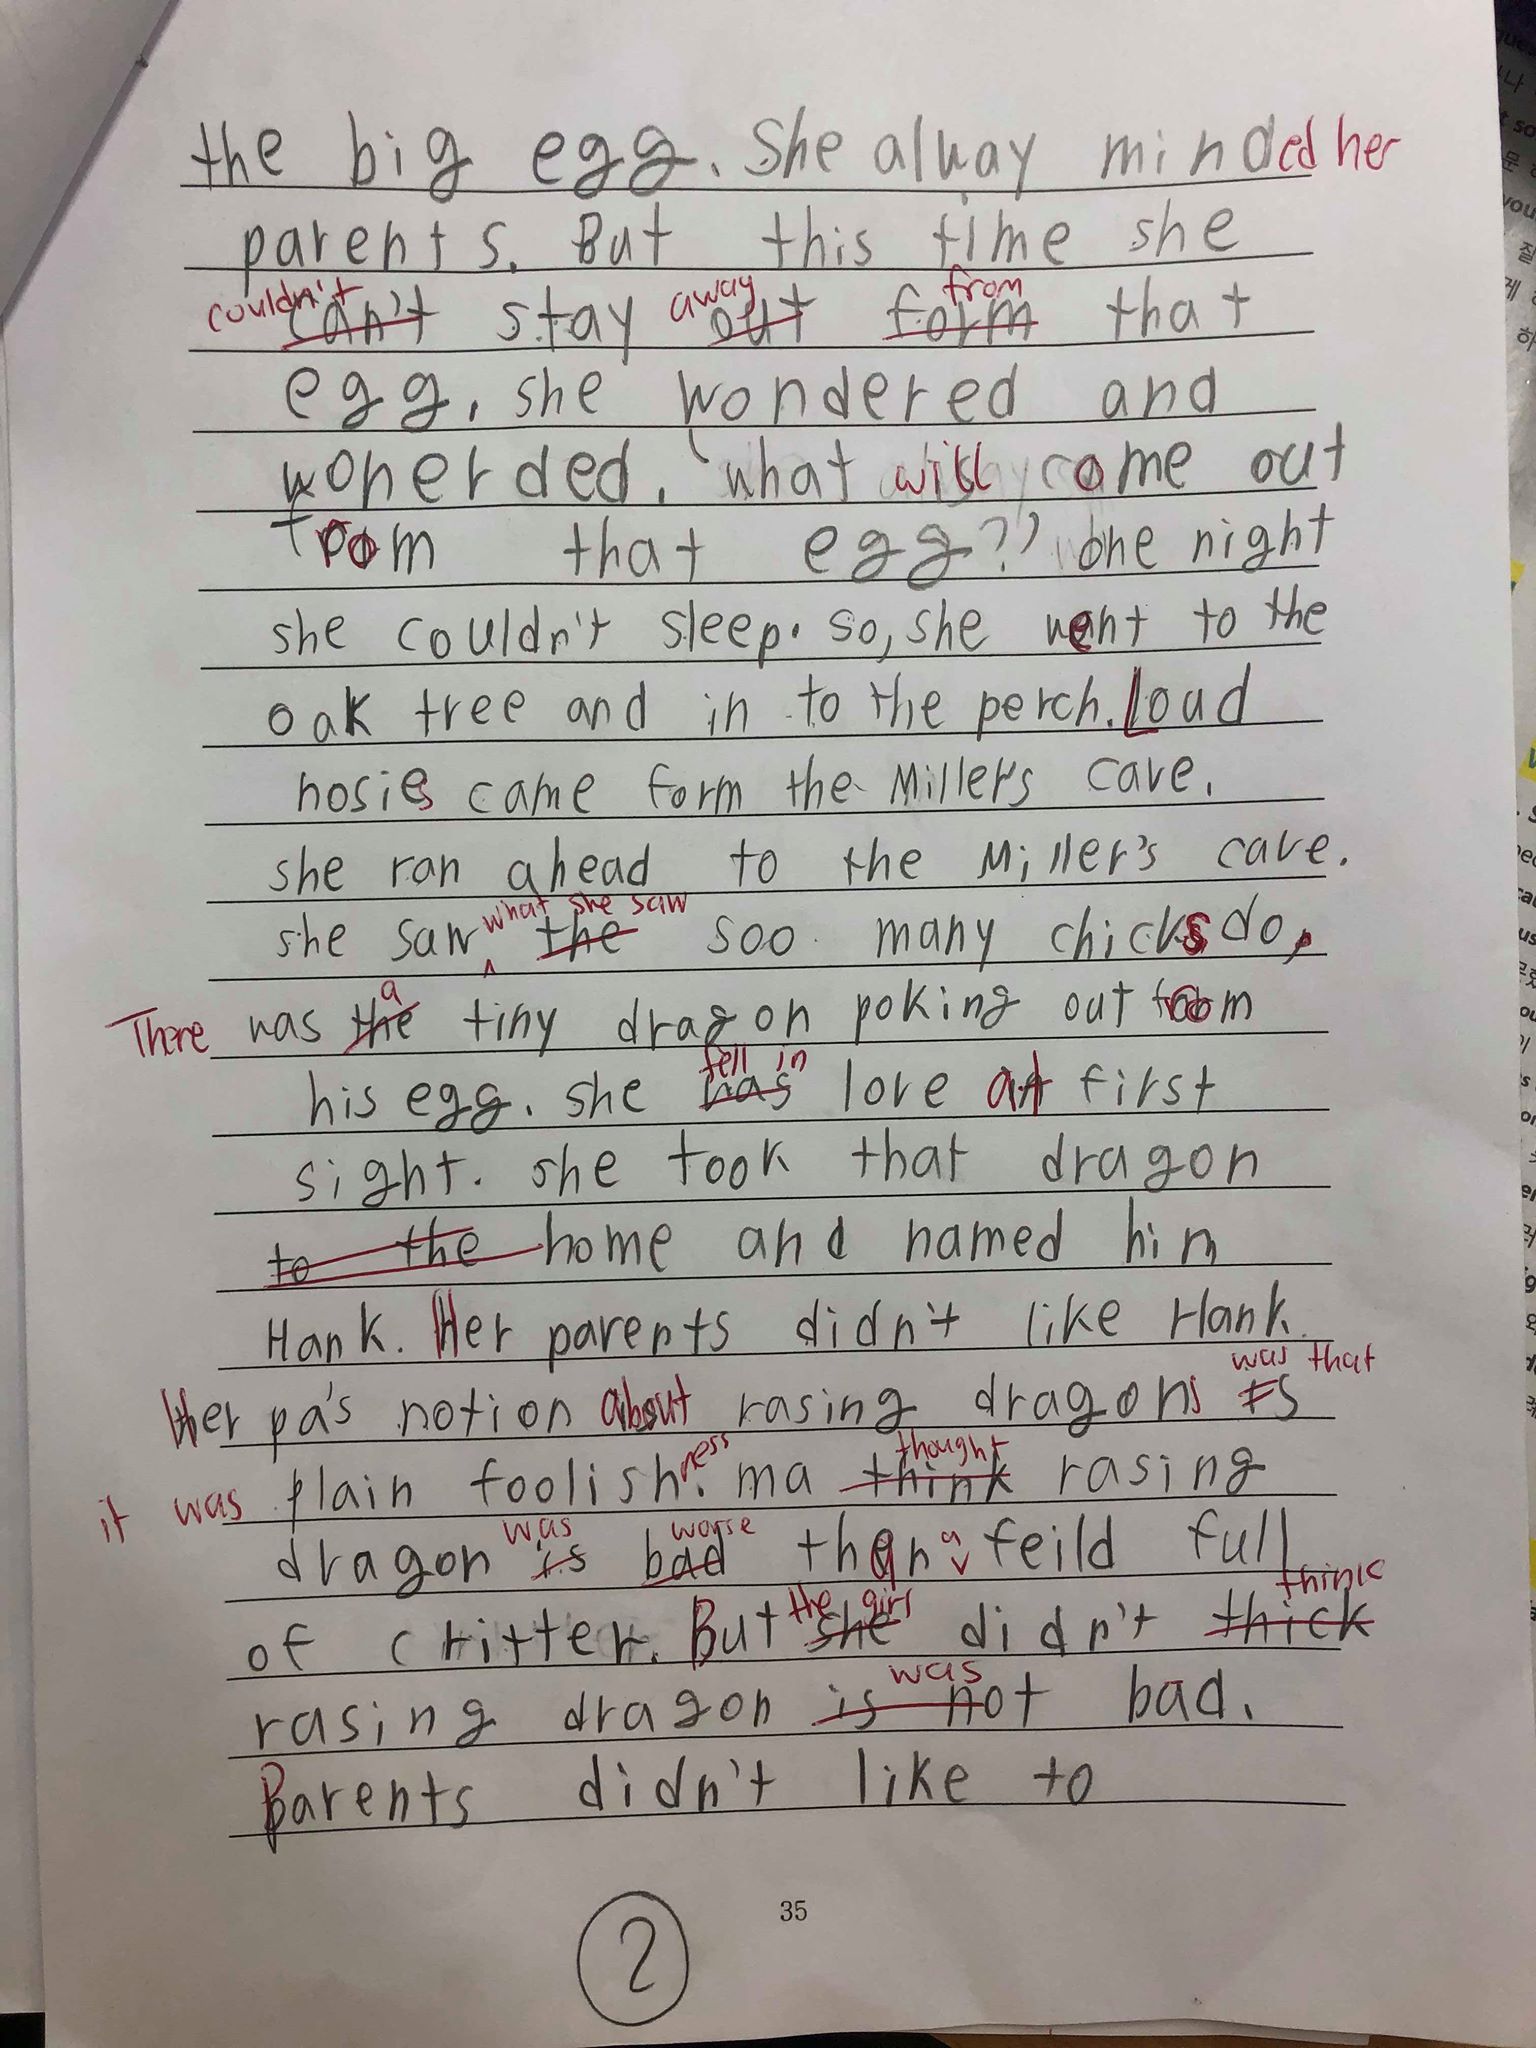 the big egg. She alway minded her
parents. But this time she
couldn't away from
can't stay out form that
egg. she wondered and
wonerded. "what will come out
from that egg?" one night
she couldn't sleep. so, she went to the
oak tree and in to the perch. Loud
nosies came form the Miller's cave.
she ran ahead to the Miller's cave.
what she saw
she saw the soo many chicks do,
a
There was the tiny dragon poking out from
fell in
his egg. she has love at first
sight. she took that dragon
to the home and named him
Hank. Her parents didn't like Hank.
was that
Her pa's notion about rasing dragons is
ness thought
it was plain foolish. ma think rasing
was worse a
dragon is bad than feild full
the girl think
of critter. But she didn't thick
was
rasing dragon is not bad.
Parents didn't like to
35
2